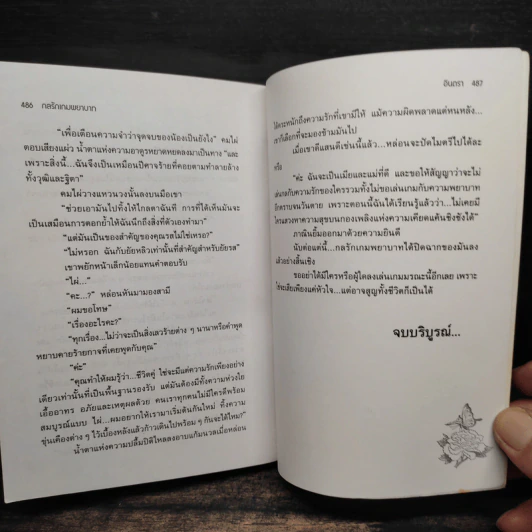 486 กลรักเกมพยาบาท
"เพื่อเตือนความจำว่าจุดจบของน้องเป็นยังไง" คมไผ่
ตอบเสียงแผ่ว น้ำตาแห่งความอาดูรหยาดหยดลงมาเป็นทาง "และ
เพราะสิ่งนี้...ฉันจึงเป็นเหมือนปีศาจร้ายที่คอยตามทำลายล้าง
ทั้งวุฒิและฐิตา"
คมไผ่วางแหวนวงนั้นลงบนมือเขา
"ช่วยเอามันไปทิ้งให้ไกลตาฉันที การที่ได้เห็นมันจะ
เป็นเสมือนการตอกย้ำให้ฉันนึกถึงสิ่งที่ตัวเองทำมา"
"แต่มันเป็นของสำคัญของคุณรสไม่ใช่เหรอ?"
"ไม่หรอก ฉันกับยัยหลิวเท่านั้นที่สำคัญสำหรับยัยรส"
เขาพยักหน้าเล็กน้อยแทนคำตอบรับ
"ไผ่..."
"คะ...?" หล่อนหันมามองสามี
"ผมขอโทษ"
"เรื่องอะไรคะ?"
"ทุกเรื่อง...ไม่ว่าจะเป็นสิ่งเลวร้ายต่าง ๆ นานาหรือคำพูด
หยาบคายร้ายกาจที่เคยพูดกับคุณ"
"ค่ะ"
"คุณทำให้ผมรู้ว่า...ชีวิตคู่ ใช่จะมีแค่ความรักเพียงอย่าง
เดียวเท่านั้นที่เป็นพื้นฐานรองรับ แต่มันต้องมีทั้งความห่วงใย
เอื้ออาทร อภัยและเหตุผลด้วย คนเราทุกคนไม่มีใครดีพร้อม
สมบูรณ์แบบ ไผ่...ผมอยากให้เรามาเริ่มต้นกันใหม่ ทิ้งความ
ขุ่นเคืองต่าง ๆ ไว้เบื้องหลังแล้วก้าวเดินไปพร้อม ๆ กันจะได้ไหม?"
น้ำตาแห่งความปลื้มปีติไหลลงอาบแก้มนวลเมื่อหล่อน
อินตรา 487
ได้ตระหนักถึงความรักที่เขามีให้ แม้ความผิดพลาดแต่หนหลัง...
เขาก็เลือกที่จะมองข้ามมันไป
เมื่อเขาดีแสนดีเช่นนี้แล้ว...หล่อนจะปัดไมตรีไปได้ละ
หรือ
"ค่ะ ฉันจะเป็นเมียและแม่ที่ดี และขอให้สัญญาว่าจะไม่
เล่นกลกับความรักของใครรวมทั้งไม่ขอเล่นเกมกับความพยาบาท
อีกตราบจนวันตาย เพราะตอนนี้ฉันได้เรียนรู้แล้วว่า...ไม่เคยมี
ใครแสวงหาความสุขบนกองเพลิงแห่งความเคียดแค้นชิงชังได้"
ภาณินยิ้มออกมาด้วยความยินดี
นับต่อแต่นี้...กลรักเกมพยาบาทได้ปิดฉากของมันลง
แล้วอย่างสิ้นเชิง
ขออย่าได้มีใครหรือผู้ใดลงเล่นเกมมรณะนี้อีกเลย เพราะ
ใช่จะเสียเพียงแค่หัวใจ...แต่อาจสูญทั้งชีวิตก็เป็นได้
จบบริบูรณ์...